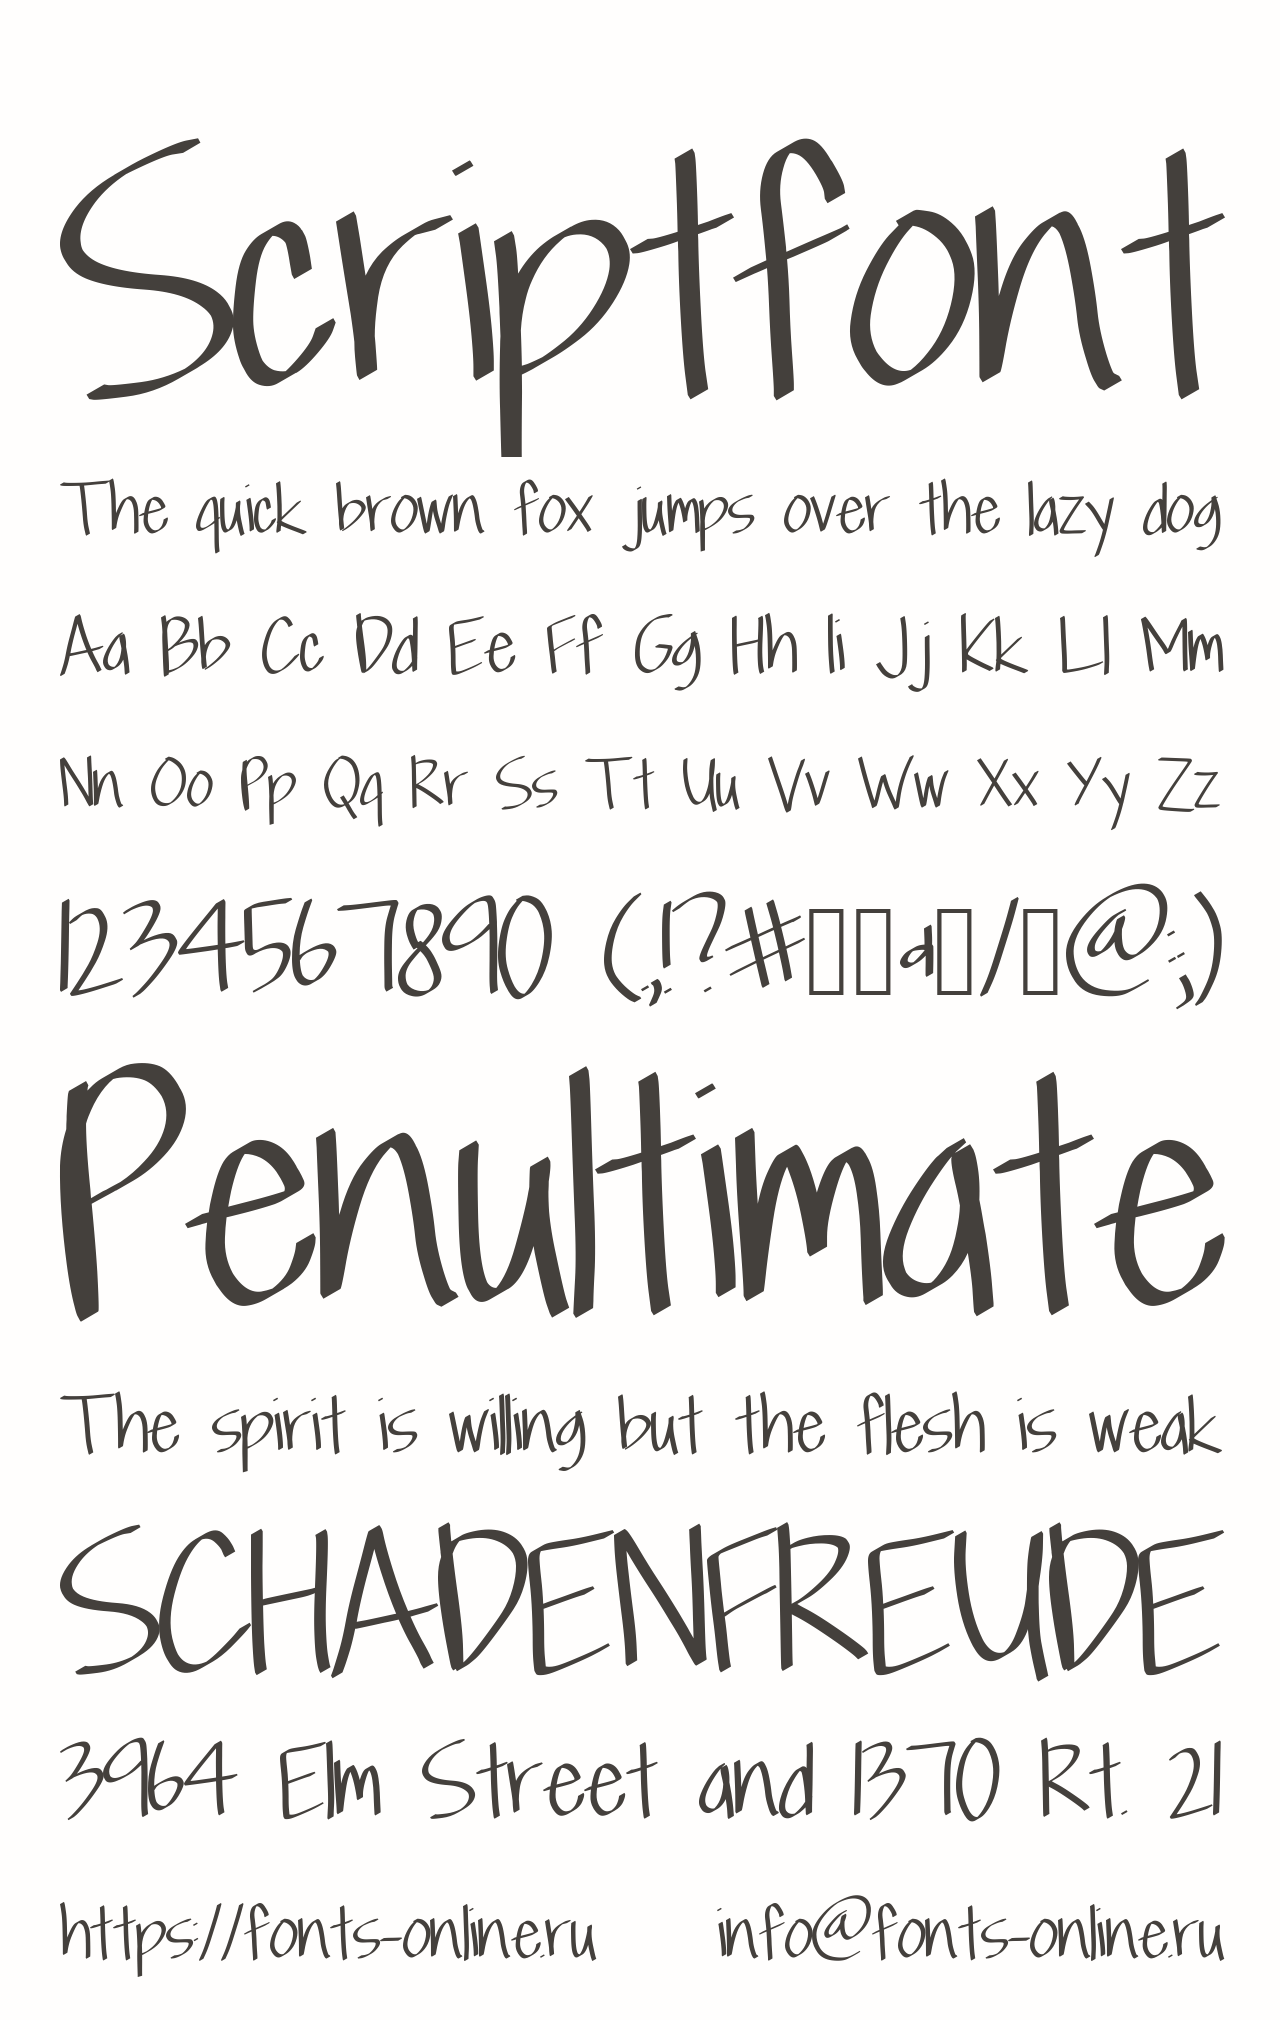 Scriptfont
The quick brown fox jumps over the lazy dog
Aa Bb Cc Dd Ee Ff Gg Hh Ii Jj Kk Ll Mm
Nn Oo Pp Qq Rr Ss Tt Uu Vv Ww Xx Yy Zz
1234567890 (.,!?#□□a□/□@:;)
Penultimate
The spirit is willing but the flesh is weak
SCHADENFREUDE
3964 Elm Street and 1370 Rt. 21
https://fonts-online.ru info@fonts-online.ru